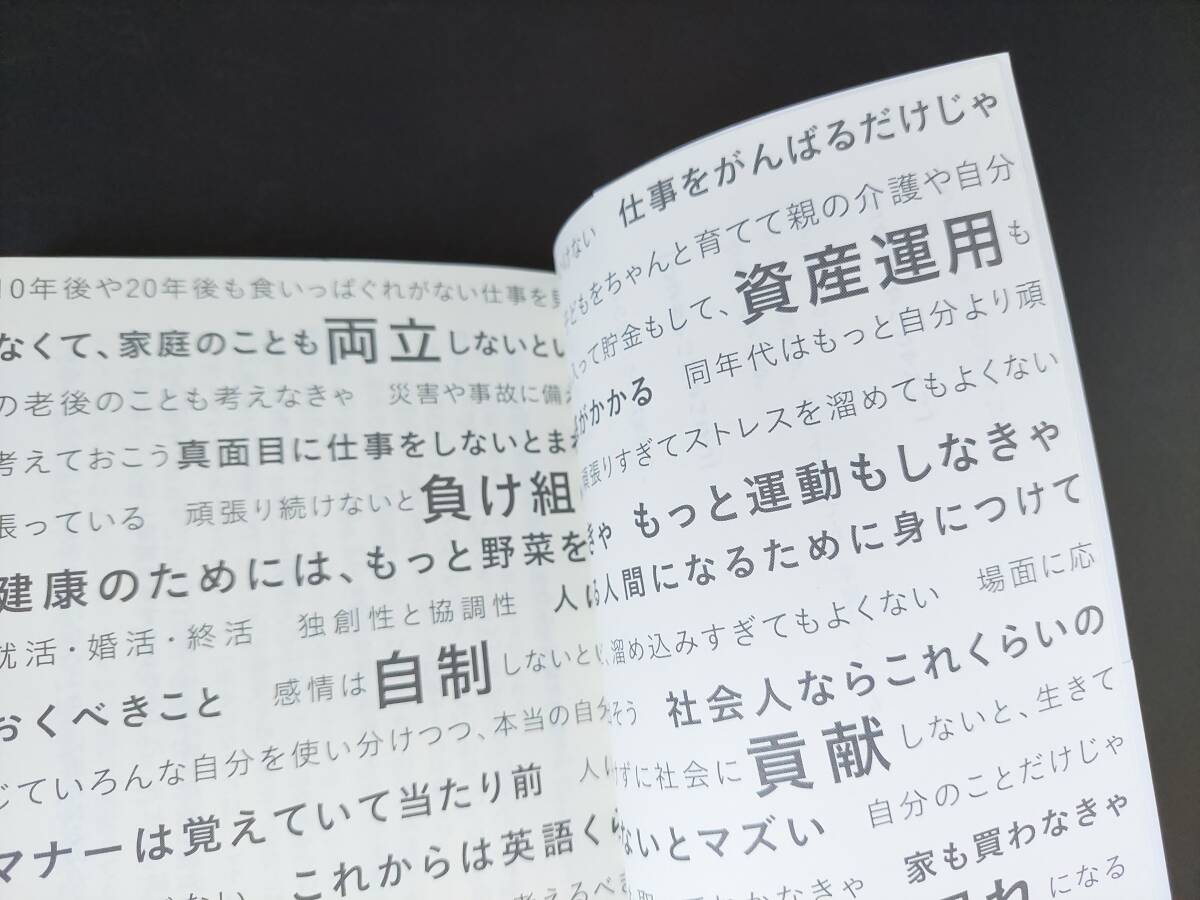 10年後や20年後も食いっぱぐれがない仕事を
なくて、家庭のことも両立しないとい
の老後のことも考えなきゃ 災害や事故に備え
考えておこう 真面目に仕事をしないとまわ
張っている 頑張り続けないと負け組
健康のためには、もっと野菜を
就活・婚活・終活 独創性と協調性 人に
おくべきこと 感情は自制しないとい
じていろんな自分を使い分けつつ、本当の自分
マナーは覚えていて当たり前 人に
これからは英語くら
考えるべき
けない 仕事をがんばるだけじゃ
子どもをちゃんと育てて親の介護や自分
って貯金もして、資産運用も
がかかる 同年代はもっと自分より頑
頑張りすぎてストレスを溜めてもよくない
きゃ もっと運動もしなきゃ
る人間になるために身につけて
溜め込みすぎてもよくない 場面に応
そう 社会人ならこれくらいの
ずに社会に貢献しないと、生きて
ないとマズい 自分のことだけじゃ
かなきゃ 家も買わなきゃ
になる